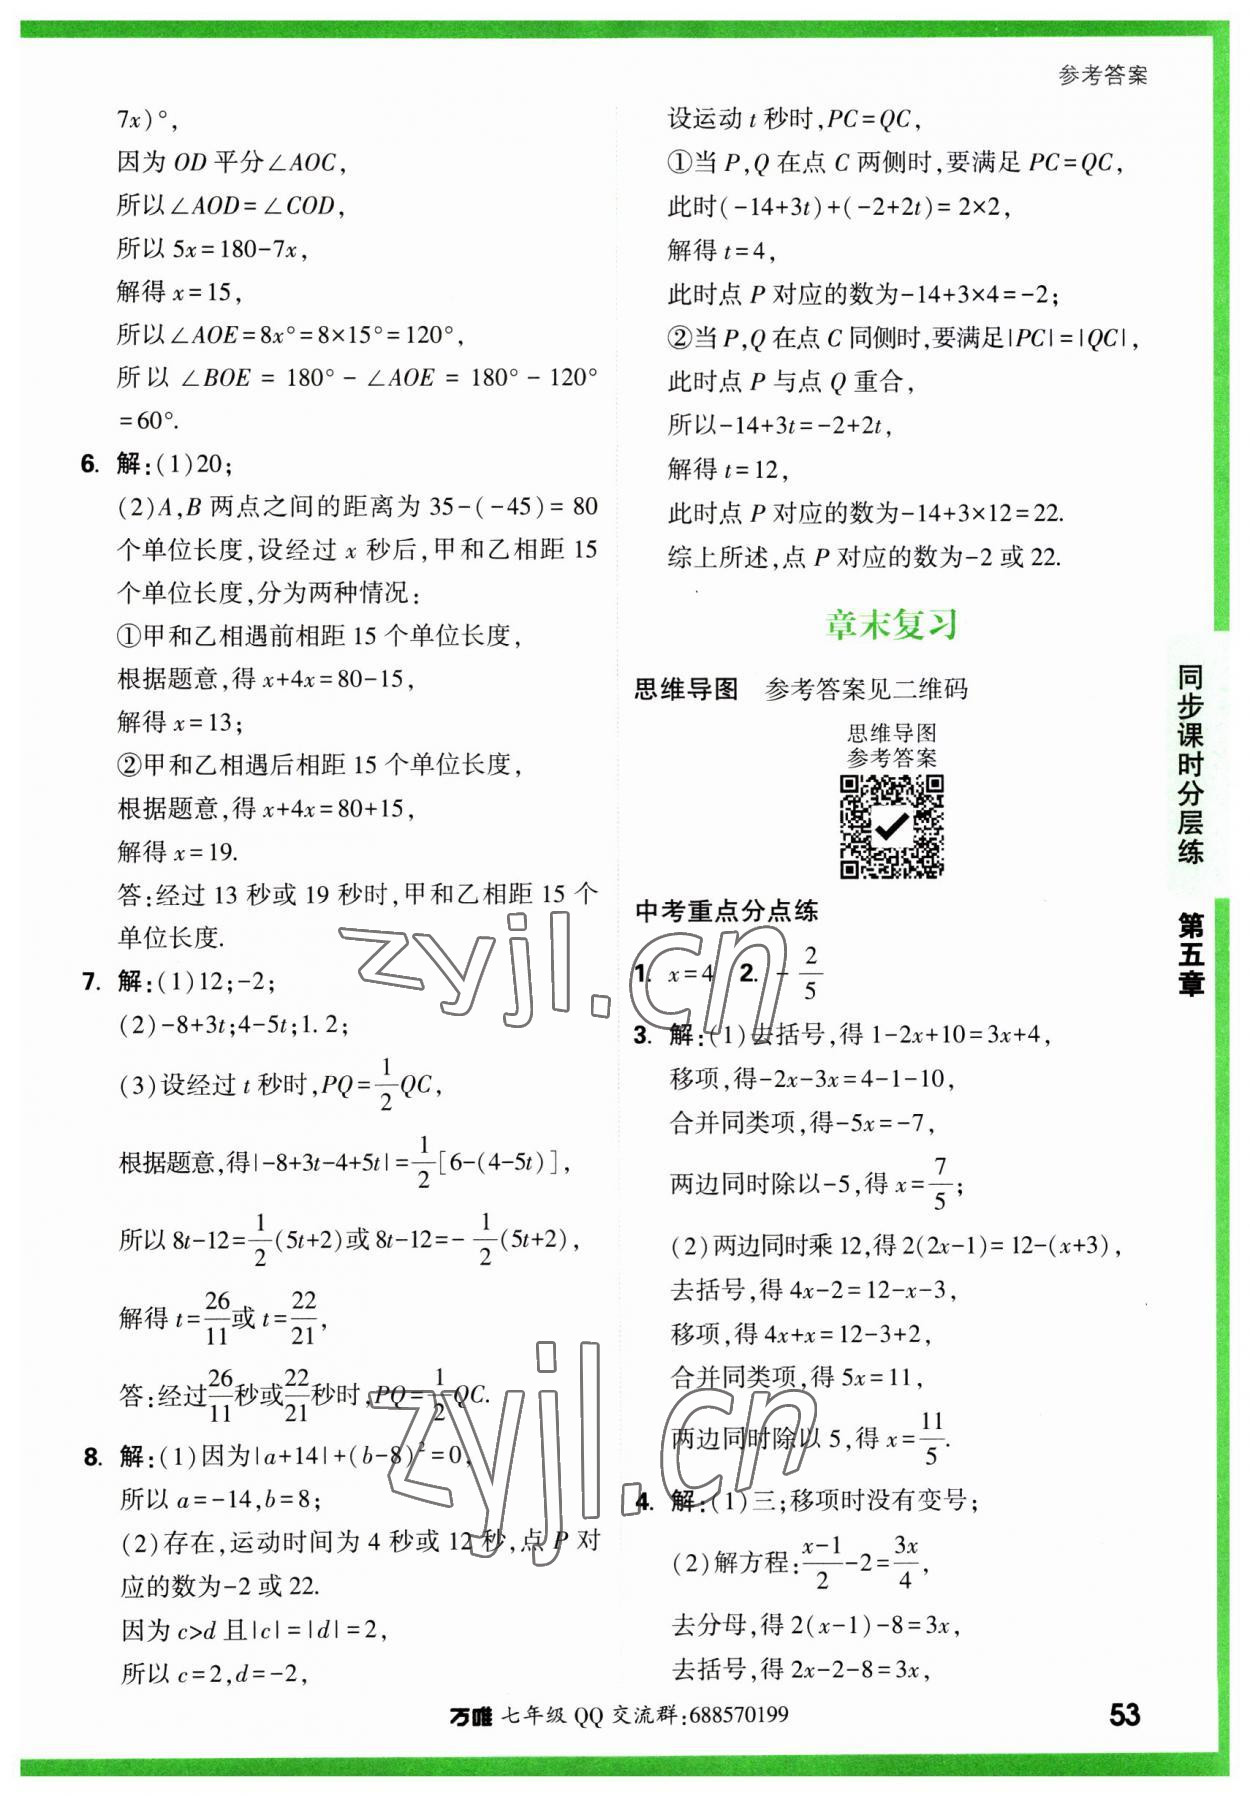 参考答案
7x)°,
因为 OD 平分∠AOC,
所以∠AOD=∠COD,
所以 5x=180-7x,
解得 x=15,
所以∠AOE=8x°=8×15°=120°,
所以 ∠BOE = 180° - ∠AOE = 180° - 120°
=60°.
6. 解:(1)20;
(2)A,B 两点之间的距离为 35-(-45)=80
个单位长度,设经过 x 秒后,甲和乙相距 15
个单位长度,分为两种情况:
①甲和乙相遇前相距 15 个单位长度,
根据题意,得 x+4x=80-15,
解得 x=13;
②甲和乙相遇后相距 15 个单位长度,
根据题意,得 x+4x=80+15,
解得 x=19.
答:经过 13 秒或 19 秒时,甲和乙相距 15 个
单位长度.
7. 解:(1)12;-2;
(2)-8+3t;4-5t;1.2;
(3)设经过 t 秒时,PQ=1/2QC,
根据题意,得|-8+3t-4+5t|=1/2[6-(4-5t)],
所以 8t-12=1/2(5t+2)或 8t-12=-1/2(5t+2),
解得 t=26/11或 t=22/21,
答:经过26/11秒或22/21秒时,PQ=1/2QC.
8. 解:(1)因为|a+14|+(b-8)²=0,
所以 a=-14,b=8;
(2)存在,运动时间为 4 秒或 12 秒,点 P 对
应的数为-2 或 22.
因为 c>d 且|c|=|d|=2,
所以 c=2,d=-2,
设运动 t 秒时,PC=QC,
①当 P,Q 在点 C 两侧时,要满足 PC=QC,
此时(-14+3t)+(-2+2t)=2×2,
解得 t=4,
此时点 P 对应的数为-14+3×4=-2;
②当 P,Q 在点 C 同侧时,要满足|PC|=|QC|,
此时点 P 与点 Q 重合,
所以-14+3t=-2+2t,
解得 t=12,
此时点 P 对应的数为-14+3×12=22.
综上所述,点 P 对应的数为-2 或 22.
章末复习
思维导图 参考答案见二维码
思维导图
参考答案
中考重点分点练
1. x=4 2. -2/5
3. 解:(1)去括号,得 1-2x+10=3x+4,
移项,得-2x-3x=4-1-10,
合并同类项,得-5x=-7,
两边同时除以-5,得 x=7/5;
(2)两边同时乘 12,得 2(2x-1)=12-(x+3),
去括号,得 4x-2=12-x-3,
移项,得 4x+x=12-3+2,
合并同类项,得 5x=11,
两边同时除以 5,得 x=11/5.
4. 解:(1)三;移项时没有变号;
(2)解方程:(x-1)/2-2=3x/4,
去分母,得 2(x-1)-8=3x,
去括号,得 2x-2-8=3x,
同步课时分层练
第五章
zyjl.cn
zyjl.cn
万唯 七年级 QQ 交流群:688570199
53